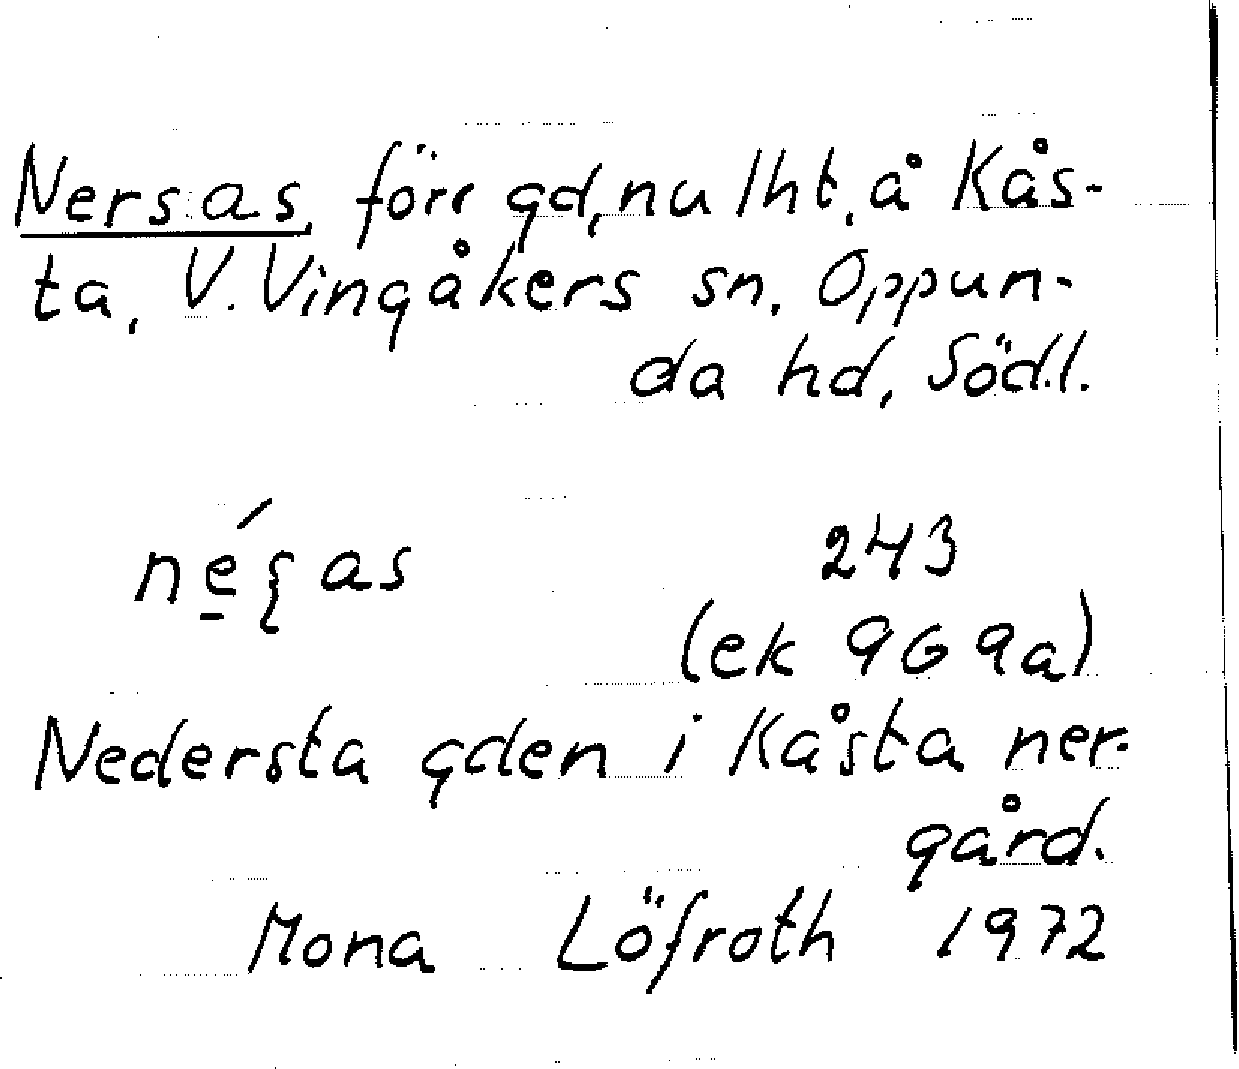 Nersas, förr gd, nu lht, å Kås-
ta, V. Vingåkers sn, Oppun-
da hd, Södl.
243
(ek 9G 9a)
Nedersta gden i Kåsta ner-
gård.
Mona Löfroth 1972